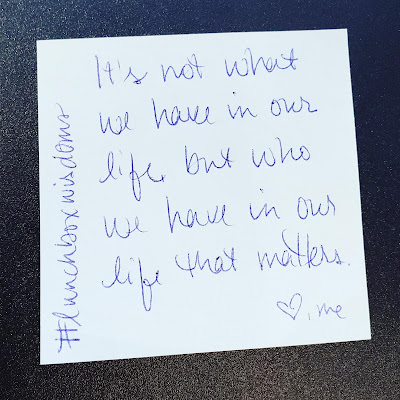 It's not what
we have in our
life, but who
we have in our
life that matters.
♡, me
#lunchboxwisdoms